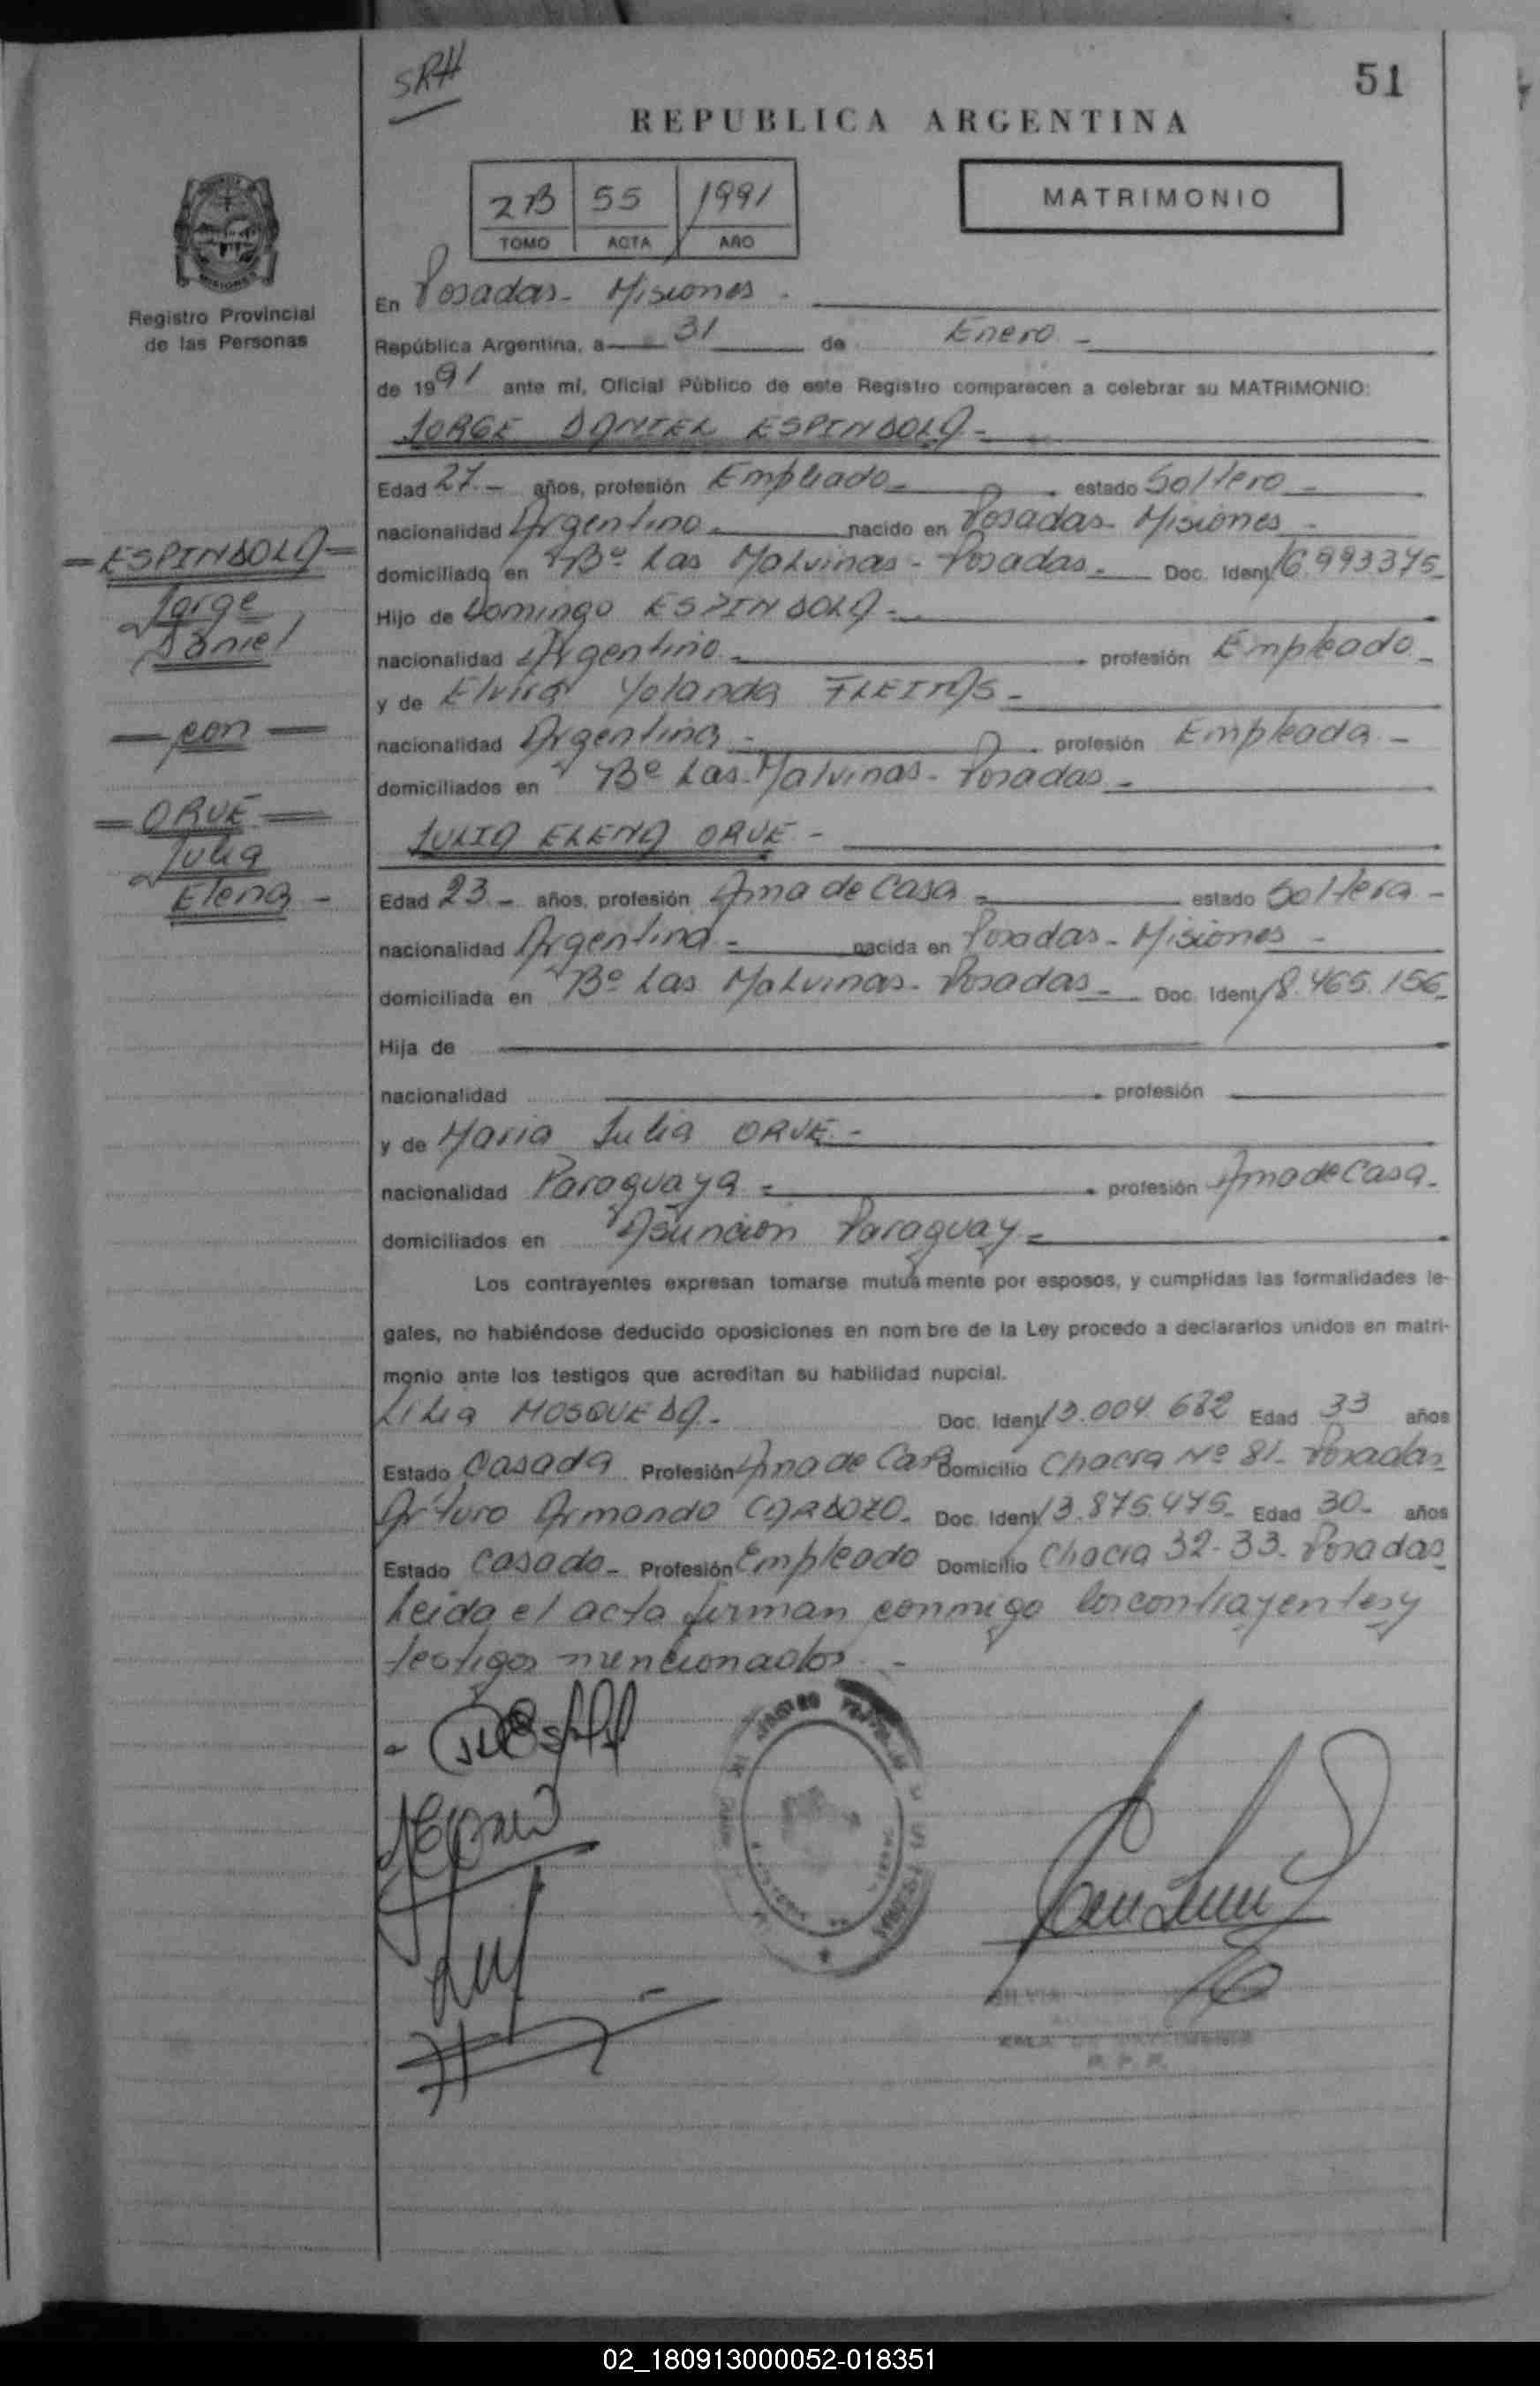 SRH
51
REPUBLICA ARGENTINA
2B 55 1991
TOMO ACTA AÑO
MATRIMONIO
Registro Provincial
de las Personas
En Posadas - Misiones -
República Argentina, a 31 de Enero -
de 1991 ante mí, Oficial Público de este Registro comparecen a celebrar su MATRIMONIO:
JORGE DANIEL ESPINDOLA -
Edad 27.- años, profesión Empleado - estado Soltero -
nacionalidad Argentino - nacido en Posadas - Misiones -
domiciliado en Bº Las Malvinas - Posadas - Doc. Ident. 16.993.375 -
Hijo de Domingo ESPINDOLA -
nacionalidad Argentino - profesión Empleado -
y de Elvira Yolanda FLEITAS -
nacionalidad Argentina - profesión Empleada -
domiciliados en Bº Las Malvinas - Posadas -
JULIA ELENA ORUE -
Edad 23 - años, profesión Ama de Casa - estado Soltera -
nacionalidad Argentina - nacida en Posadas - Misiones -
domiciliada en Bº Las Malvinas - Posadas - Doc. Ident. 18.465.156 -
Hija de
nacionalidad profesión
y de Maria Julia ORUE -
nacionalidad Paraguaya - profesión Ama de Casa -
domiciliados en Asunción Paraguay -
Los contrayentes expresan tomarse mutuamente por esposos, y cumplidas las formalidades le-
gales, no habiéndose deducido oposiciones en nombre de la Ley procedo a declararlos unidos en matri-
monio ante los testigos que acreditan su habilidad nupcial.
Lilia MOSQUEDA - Doc. Ident. 13.004.682 Edad 33 años
Estado Casada Profesión Ama de Casa Domicilio Chacra Nº 81 - Posadas
Arturo Armando CARDOZO - Doc. Ident. 13.875.475 - Edad 30 - años
Estado Casado - Profesión Empleado Domicilio Chacra 32-33 - Posadas
Leida el acta firman conmigo los contrayentes y
testigos mencionados -
- ESPINDOLA -
Jorge
Daniel
- con -
- ORUE -
Julia
Elena -
02_180913000052-018351